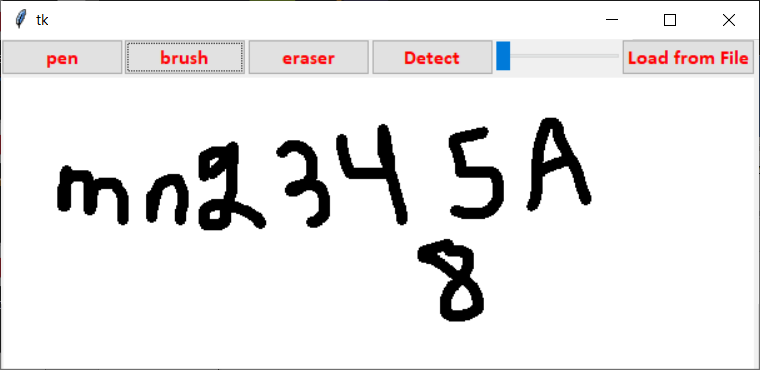 tk
pen brush eraser Detect Load from File
mn2345A
8